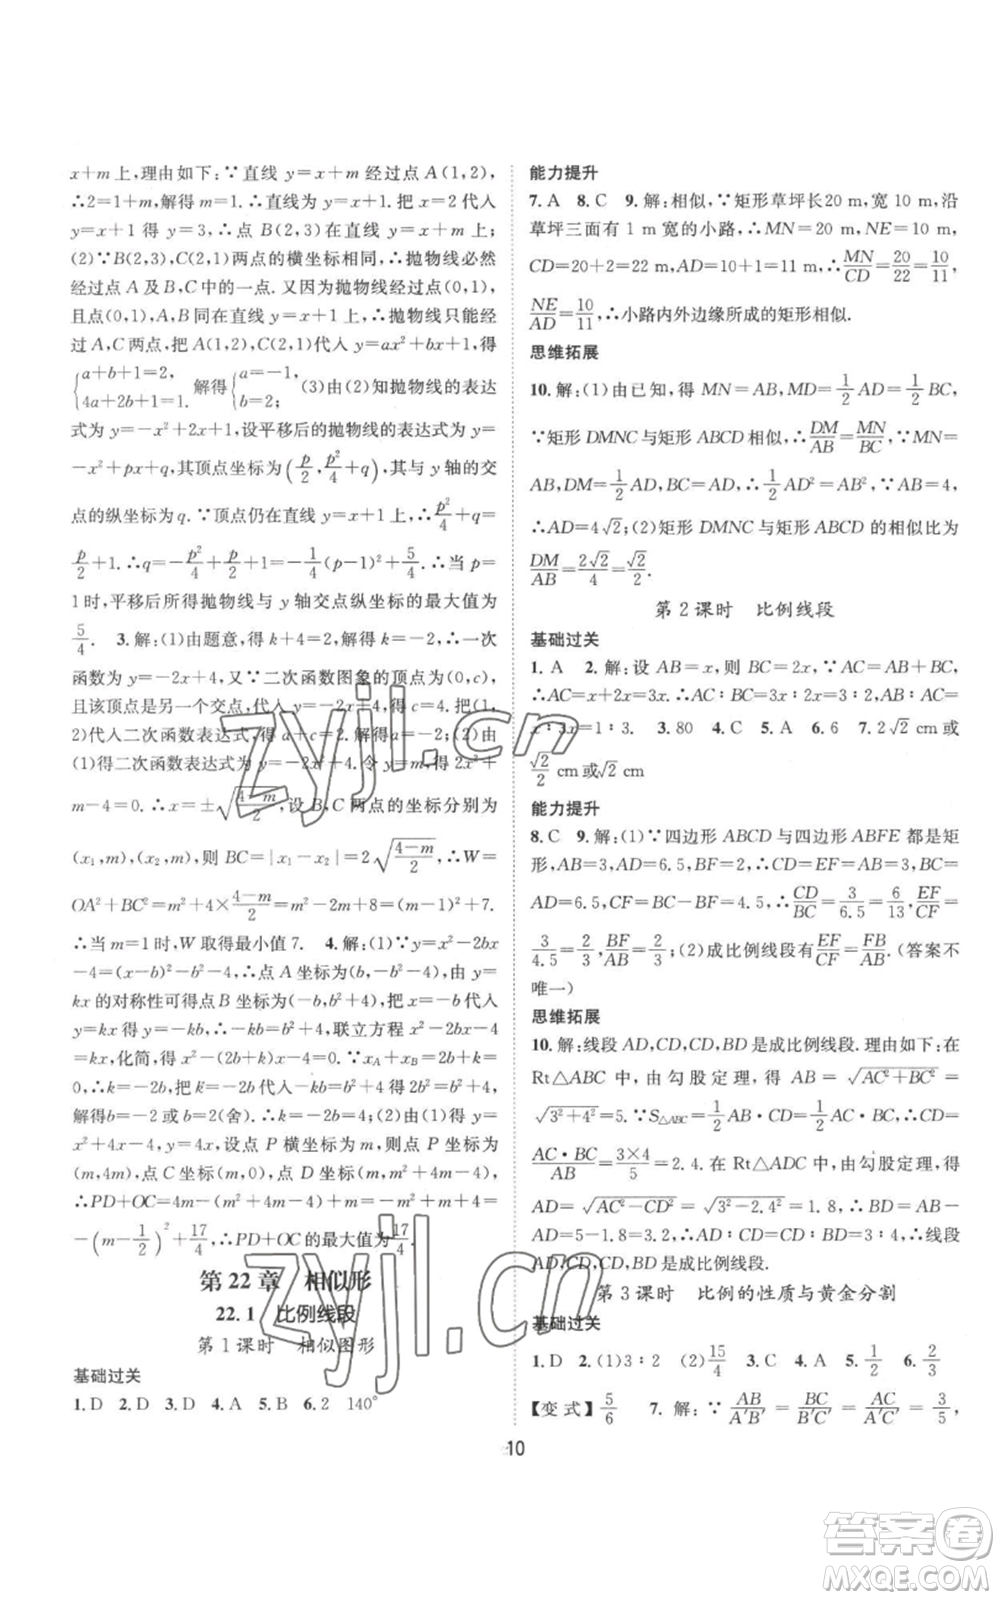 x+m上,理由如下:∵直线y=x+m经过点A(1,2),
∴2=1+m,解得m=1.∴直线为y=x+1.把x=2代入
y=x+1得y=3,∴点B(2,3)在直线y=x+m上;
(2)∵B(2,3),C(2,1)两点的横坐标相同,∴抛物线必然
经过点A及B,C中的一点.又因为抛物线经过点(0,1),
且点(0,1),A,B同在直线y=x+1上,∴抛物线只能经过
A,C两点,把A(1,2),C(2,1)代入y=ax²+bx+1,得
{a+b+1=2, 4a+2b+1=1. 解得{a=-1, b=2; (3)由(2)知抛物线的表达
式为y=-x²+2x+1,设平移后的抛物线的表达式为y=
-x²+px+q,其顶点坐标为(p/2,p²/4+q),其与y轴的交
点的纵坐标为q.∵顶点仍在直线y=x+1上,∴p²/4+q=
p/2+1.∴q=-p²/4+p/2+1=-1/4(p-1)²+5/4.∴当p=
1时,平移后所得抛物线与y轴交点纵坐标的最大值为
5/4. 3.解:(1)由题意,得k+4=2,解得k=-2,∴一次
函数为y=-2x+4.又∵二次函数图象的顶点为(0,c),
且该顶点是另一个交点,代入得c=4.把(1,
2)代入二次函数表达式,得a+c=2.解得a=-2;(2)由
(1)得二次函数表达式为y=-2x²+4.令y=m,得2x²+
m-4=0.∴x=±√(4-m)/2,设B,C两点的坐标分别为
(x₁,m),(x₂,m),则BC=|x₁-x₂|=2√(4-m)/2,∴W=
OA²+BC²=m²+4×(4-m)/2=m²-2m+8=(m-1)²+7.
∴当m=1时,W取得最小值7. 4.解:(1)∵y=x²-2bx
+b²-4=(x-b)²-4,∴点A坐标为(b,-4),由y=
kx的对称性可得点B坐标为(-b,b²+4),把x=-b代入
y=kx得y=-kb,∴-kb=b²+4,联立方程x²-2bx-4
=kx,化简,得x²-(2b+k)x-4=0.∵x_A+x_B=2b+k=
0,∴k=-2b,把k=-2b代入-kb=b²+4得2b²=b²+4,
解得b=-2或b=2(舍).∴k=-2b=4;(2)由(1)得y=
x²+4x-4,y=4x,设点P横坐标为m,则点P坐标为
(m,4m),点C坐标(m,0),点D坐标(m,m²+4m-4),
∴PD+OC=4m-(m²+4m-4)+m=-m²+m+4=
-(m-1/2)²+17/4,∴PD+OC的最大值为17/4.
第22章 相似形
22.1 比例线段
第1课时 相似图形
基础过关
1.D 2.D 3.D 4.A 5.B 6.2 140°
能力提升
7.A 8.C 9.解:相似,∵矩形草坪长20 m,宽10 m,沿
草坪三面有1 m宽的小路,∴MN=20 m,NE=10 m,
CD=20+2=22 m,AD=10+1=11 m,∴MN/CD=20/22=10/11,
NE/AD=10/11,∴小路内外边缘所成的矩形相似.
思维拓展
10.解:(1)由已知,得MN=AB,MD=1/2AD=1/2BC,
∵矩形DMNC与矩形ABCD相似,∴DM/AB=MN/BC,∵MN=
AB,DM=1/2AD,BC=AD,∴1/2AD²=AB²,∵AB=4,
∴AD=4√2;(2)矩形DMNC与矩形ABCD的相似比为
DM/AB=2√2/4=√2/2.
第2课时 比例线段
基础过关
1.A 2.解:设AB=x,则BC=2x,∵AC=AB+BC,
∴AC=x+2x=3x.∴AB∶AC=
x∶3x=1∶3. 3.80 4.C 5.A 6.6 7.2√2 cm或
√2/2 cm或√2 cm
能力提升
8.C 9.解:(1)∵四边形ABCD与四边形ABFE都是矩
形,AB=3,AD=6.5,BF=2,∴CD=EF=AB=3,BC=
AD=6.5,CF=BC-BF=4.5,∴CD/BC=3/6.5=6/13,EF/CF=
3/4.5=2/3,BF/AB=2/3;(2)成比例线段有EF/CF=FB/AB.(答案不
唯一)
思维拓展
10.解:线段AD,CD,CD,BD是成比例线段.理由如下:在
Rt△ABC中,由勾股定理,得AB=√AC²+BC²=
√3²+4²=5.∵S△ABC=1/2AB·CD=1/2AC·BC,∴CD=
AC·BC/AB=3×4/5=2.4.在Rt△ADC中,由勾股定理,得
AD=√AC²-CD²=√3²-2.4²=1.8,∴BD=AB-
AD=5-1.8=3.2.∴AD/CD=CD/BD,∴线段
AD,CD,CD,BD是成比例线段.
第3课时 比例的性质与黄金分割
基础过关
1.D 2.(1)3∶2 (2)15/4 3.C 4.A 5.1/2 6.2/3
【变式】5/6 7.解:∵AB/A′B′=BC/B′C′=AC/A′C′=3/5,
10
zyjl.cn
zyjl.cn
答案圈
MXQE.COM